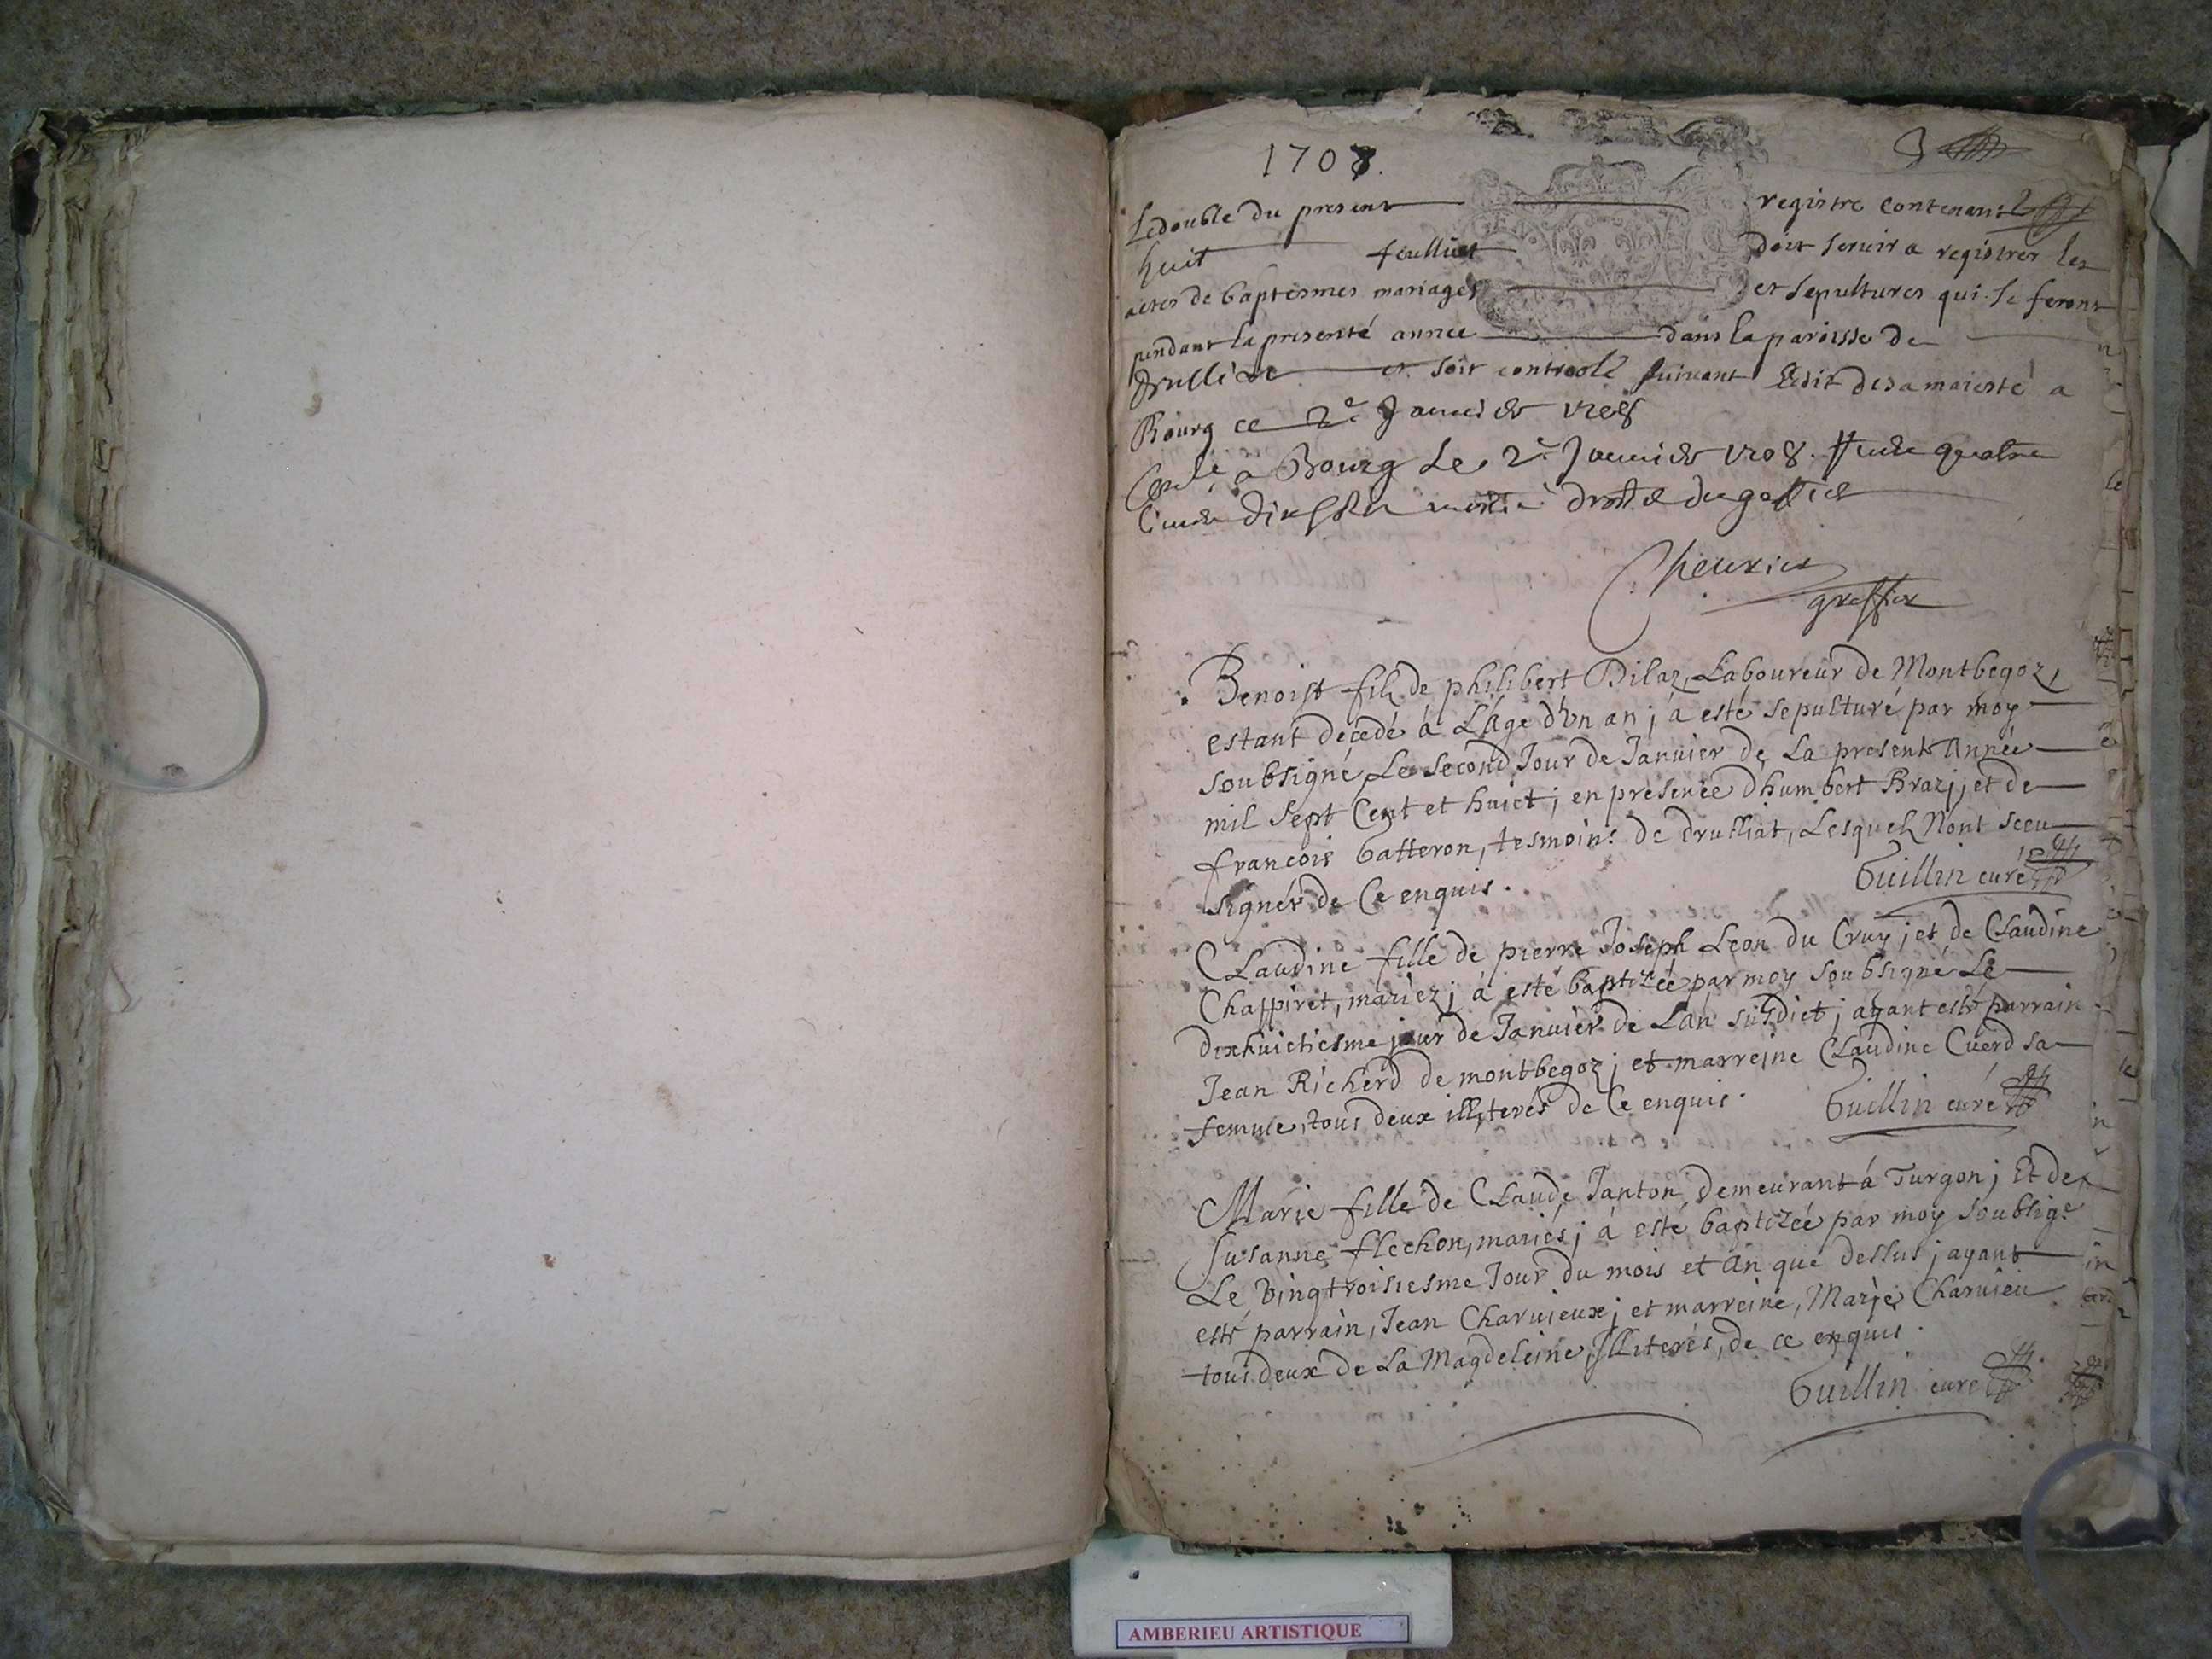 1708.
Le double du present registre contenant
huit feulliet doit servir a registrer les
actes de baptesmes mariages et sepultures qui se feront
pendant la presente annee dans la paroisse de
Drulliat et soit controolé suivant Ledit de sa maiesté a
Bourg ce 2e Janvier 1708
a Bourg le 2e Janvier 1708. quatre
greffier
Benoist filz de philibert Bilaz, Laboureur de Montbegoz,
estant decedé á Láge d'vn an; á esté sepulturé par moy
soubsigné, Le second Jour de Januier de La presente Année
mil sept Cent et huict; en présence Dhumbert Braz; et de
francois batteron, tesmoins de drulliat, Lesquelz Nont sceu
signér de Ce enquis.
Guillin curé
CLaudine fille de pierre Joseph Leon du Cruy; et de CLaudine
Chappiret, mariéz; á esté baptizéé par moy soubsigné Le
dixhuictiesme jour de Januier de Lán susdict; ayant esté parrain
Jean Richerd de montbegoz; et marreine CLaudine Cuerd sa
femme, tous deux illiterés de Ce enquis.
Guillin curé
Marie fille de CLaude Janton, demeurant á Turgon; Et de
Susanne flechon, mariés; á esté baptizéé par moy soubsig.é
Le vingtroisiesme Jour du mois et An que dessus; ayant
esté parrain, Jean Charuieux; et marreine, Marie Charuieu
tous deux de La Magdeleine, Illiterés, de ce enquis.
Guillin curé
AMBERIEU ARTISTIQUE